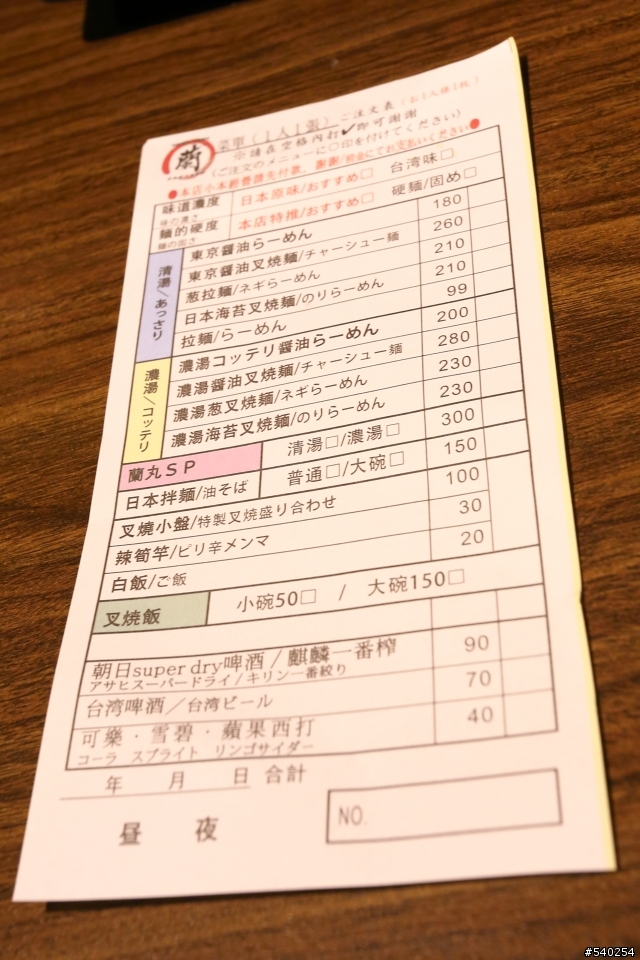 蘭
菜單(1人1張)ご注文表(お1人様1枚)
※請在空格內打✓即可謝謝
(ご注文のメニューに○印を付けてください)
●本店小本經營請先付款，謝謝/現金にてお支払いください●
味道濃度 日本原味/おすすめ□ 台湾味□
味の濃さ
麵的硬度 本店特推/おすすめ□ 硬麵/固め□
麺の固さ
清湯／あっさり
東京醤油らーめん 180
東京醤油叉焼麺/チャーシュー麺 260
葱拉麺/ネギらーめん 210
日本海苔叉焼麺/のりらーめん 210
拉麺/らーめん 99
濃湯／コッテリ
濃湯コッテリ醤油らーめん 200
濃湯醤油叉焼麺/チャーシュー麺 280
濃湯葱叉焼麺/ネギらーめん 230
濃湯海苔叉焼麺/のりらーめん 230
蘭丸ＳＰ 清湯□/濃湯□ 300
日本拌麺/油そば 普通□/大碗□ 150
叉燒小盤/特製叉焼盛り合わせ 100
辣筍竿/ピリ辛メンマ 30
白飯/ご飯 20
叉焼飯 小碗50□ / 大碗150□
朝日super dry啤酒/麒麟一番榨 90
アサヒスーパードライ/キリン一番絞り
台湾啤酒／台湾ビール 70
可樂·雪碧·蘋果西打 40
コーラ スプライト リンゴサイダー
年 月 日 合計
昼 夜 NO.
#540254